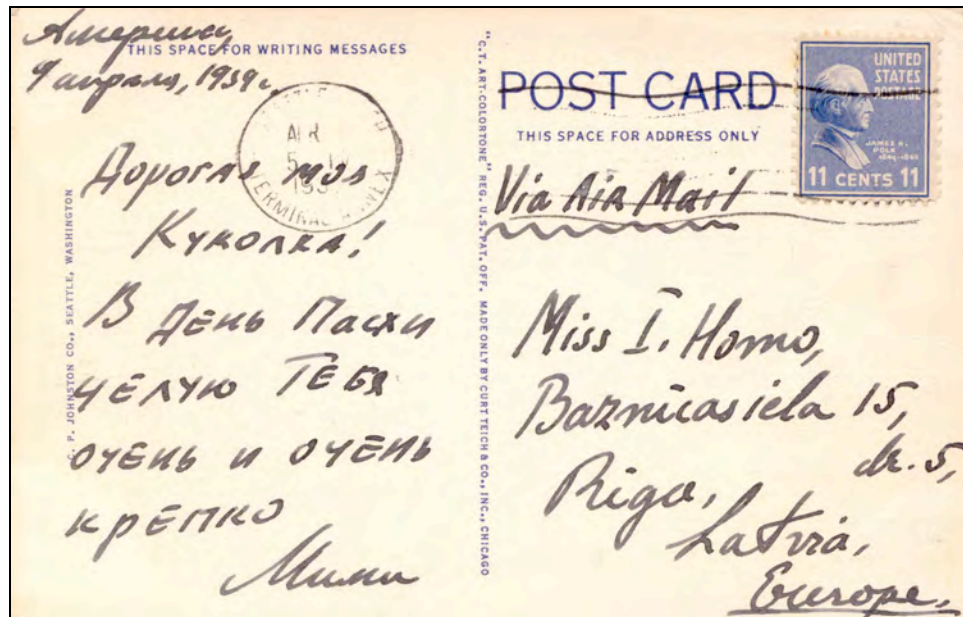 Америка,
9 апреля, 1939 г.
THIS SPACE FOR WRITING MESSAGES
Дорогая моя
Куколка!
В день Пасхи
целую тебя
очень и очень
крепко
Мими
C. P. JOHNSTON CO., SEATTLE, WASHINGTON
APR
5
193
TERMINAL ANNEX
"C.T. ART-COLORTONE" REG. U.S. PAT. OFF. MADE ONLY BY CURT TEICH & CO., INC., CHICAGO
POST CARD
THIS SPACE FOR ADDRESS ONLY
UNITED
STATES
POSTAGE
JAMES K.
POLK
11 CENTS 11
Via Air Mail
Miss I. Homo,
Baznicasiela 15,
dz. 5,
Riga,
Latvia,
Europe.